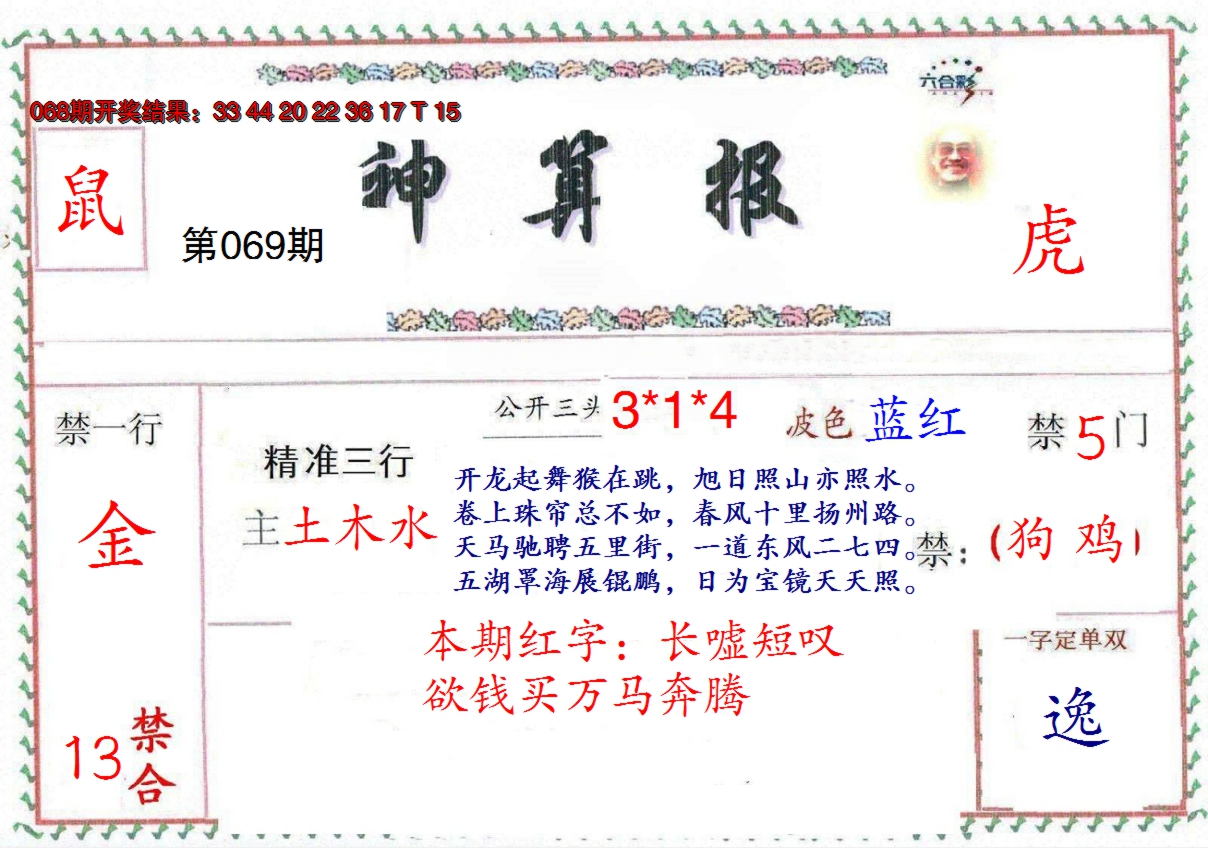 六合彩
068期开奖结果：33 44 20 22 36 17 T 15
神算报
鼠
第069期
虎
禁一行
金
13禁合
精准三行
主土木水
公开三头3*1*4
波色 蓝红
禁5门
开龙起舞猴在跳，旭日照山亦照水。
卷上珠帘总不如，春风十里扬州路。
天马驰聘五里街，一道东风二七四。
五湖罩海展锟鹏，日为宝镜天天照。
禁：（狗 鸡）
本期红字：长嘘短叹
欲钱买万马奔腾
一字定单双
逸